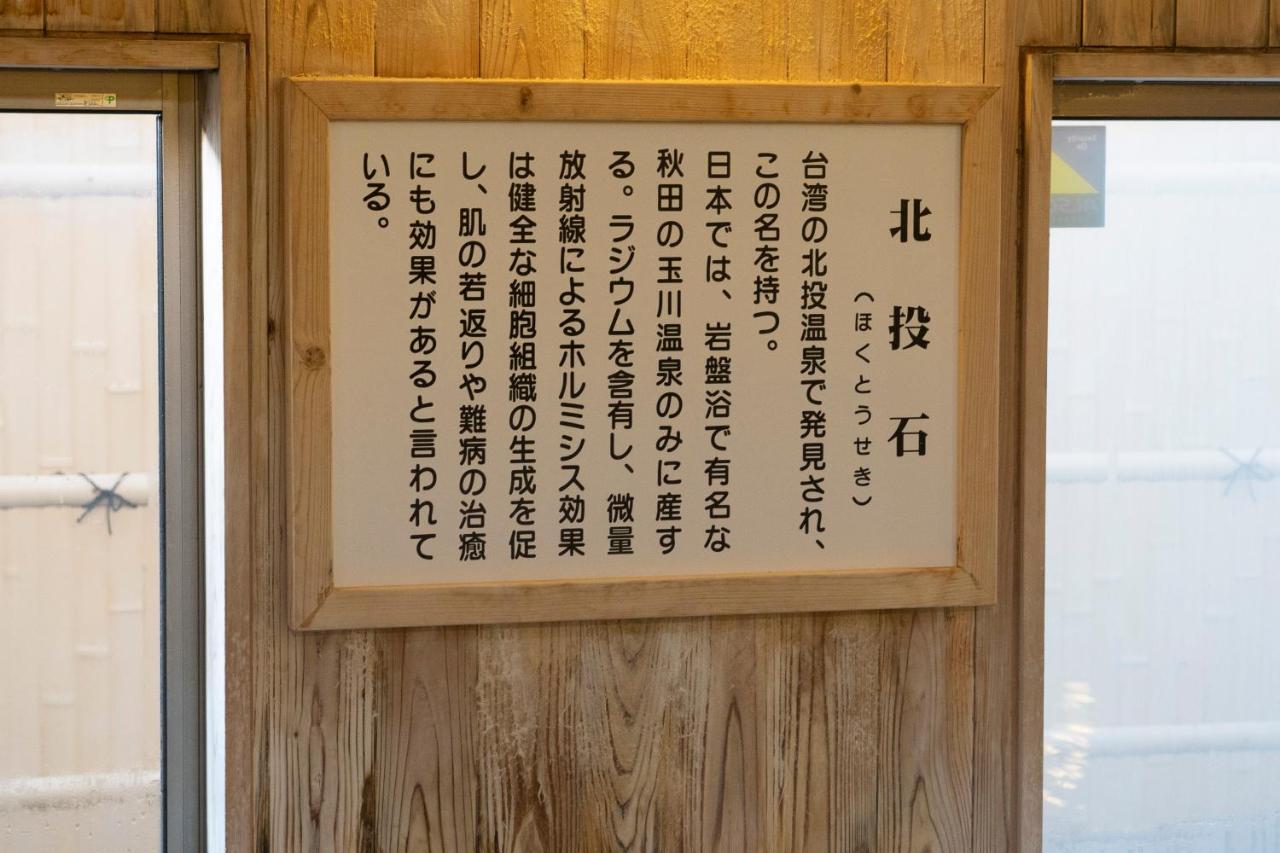 北投石
（ほくとうせき）
台湾の北投温泉で発見され、
この名を持つ。
日本では、岩盤浴で有名な
秋田の玉川温泉のみに産す
る。ラジウムを含有し、微量
放射線によるホルミシス効果
は健全な細胞組織の生成を促
し、肌の若返りや難病の治癒
にも効果があると言われて
いる。
Security
On